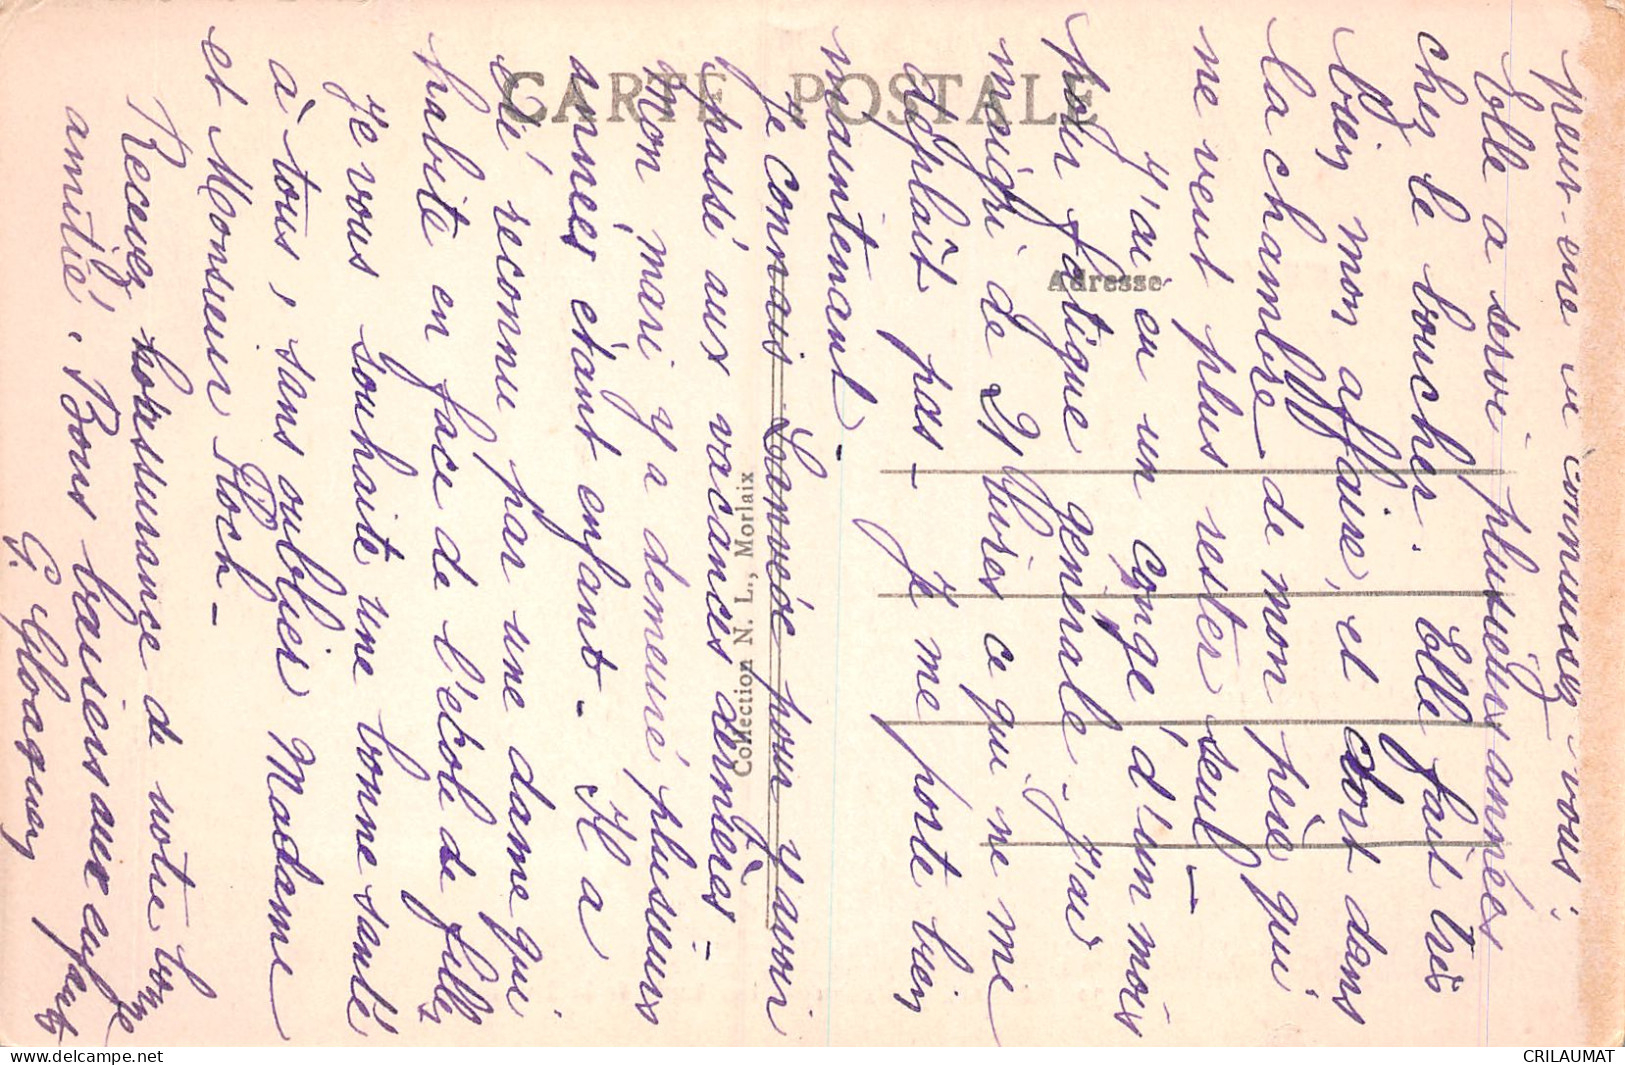 CARTE POSTALE
Adresse
Collection N. L., Morlaix
peur-être connaissez-vous !
Elle a servi plusieurs années
chez le boucher. Elle fait très
bien mon affaire, et dort dans
la chambre de mon père qui
ne veut plus rester seul –
J'ai eu un congé d'un mois
pour fatigue générale – J'ai
maigri de 21 livres ce qui ne me
déplaît pas – Je me porte bien
maintenant –
Je connais Lanvéoc pour y avoir
passé aux vacances dernières –
Mon mari y a demeuré plusieurs
années étant enfant – Il a
été reconnu par une dame qui
habite en face de l'école de filles
Je vous souhaite une bonne santé
à tous, sans oublier Madame
et Monsieur Floch –
Recevez l'assurance de notre bonne
amitié. Bons baisers aux enfants
G. Gloaguen
CRILAUMAT